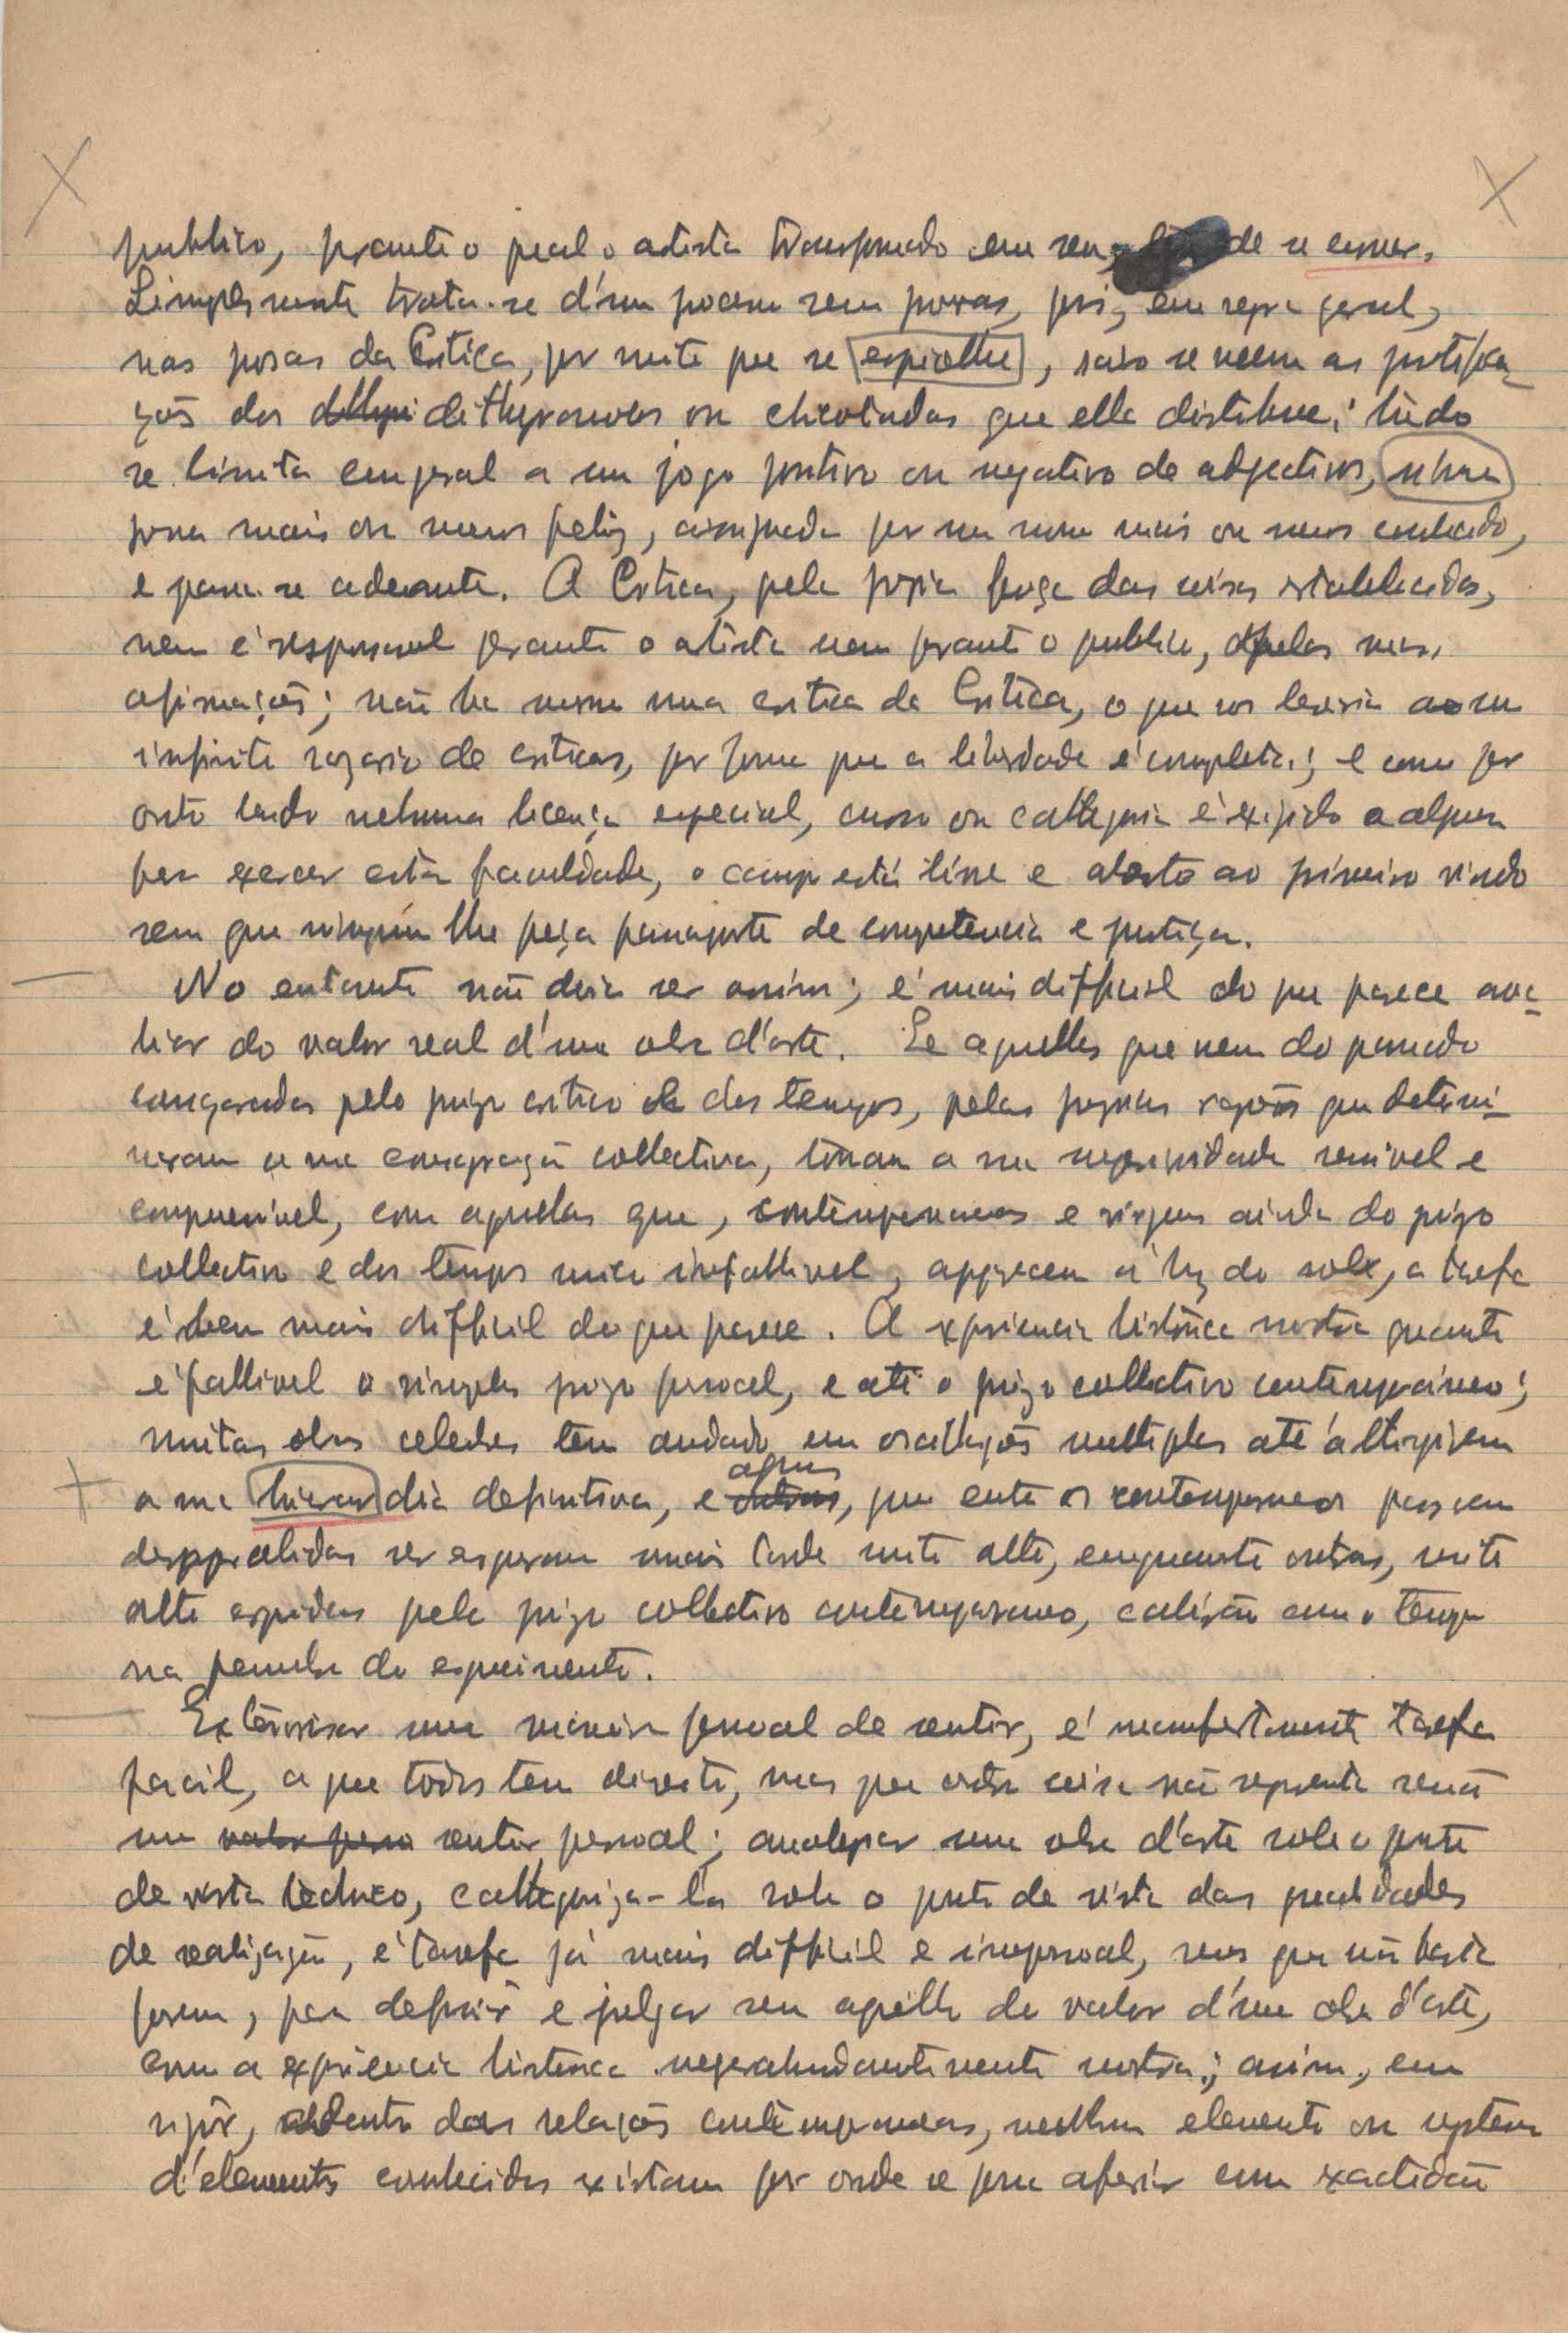 publico, perante o qual o artista transformado em reu, de se erguer.
Simplesmente trata-se d'um processo sem provas, pois, em regra geral,
nas prosas da Critica, por muito que se espiolhe, raro se veem as justifica-
ções dos dithyrambos ou chicotadas que ella distribue; tudo
se limita em geral a um jogo positivo ou negativo de adjectivos, n'uma
prosa mais ou menos feliz, assignada por um nome mais ou menos conhecido,
e passa-se adeante. A Critica, pela propria força das coisas estabelecidas,
nem é responsavel perante o artista nem perante o publico, pelas suas
afirmações; não ha mesmo uma critica da Critica, o que nos levaria a um
infinito rozario de criticas, por forma que a liberdade é completa; e como por
outro lado nehuma licença especial, curso ou cathegoria é exigido a alguem
para exercer esta faculdade, o campo está livre e aberto ao primeiro vindo
sem que ninguem lhe peça passaporte de competencia e justiça.
No entanto não devia ser assim; é mais difficil do que parece ava-
liar do valor real d'uma obra d'arte. Se aquellas que veem do passado
consagradas pelo juizo critico dos tempos, pelas proprias razões que determi-
naram a sua consagração collectiva, tornam a sua superioridade sensivel e
comprensivel, com aquelas que, contemporaneas e virgens ainda do juizo
collectivo e dos tempos unico infallivel, apparecem á luz do sol, a tarefa
é bem mais difficil do que parece. A experiencia historica mostra quanto
é fallivel o simples juizo pessoal, e até o juizo collectivo contemporaneo;
muitas obras celebres tem andado em oscillações multiplas até attingirem
a sua hierarchia definitiva, e algumas, que entre os contemporaneos passam
despercebidas se ergueram mais tarde muito alto, emquanto outras, muito
alto erguidas pelo juizo collectivo contemporaneo, cahirão com o tempo
na penumbra do esquecimento.
Exteriorisar uma maneira pessoal de sentir, é manifestamente tarefa
facil, a que todos tem direito, mas que outra coisa não representa senão
um sentir pessoal; analysar uma obra d'arte sob o ponto
de vista technico, cathegoriza-la sob o ponto de vista das qualidades
de realização, é tarefa já mais difficil e impessoal, mas que não basta
porem, para definir e julgar sem apello do valor d'uma obra d'arte,
como a experiencia historica superabundantemente mostra; assim, em
rigôr, dentro das relações contemporaneas, nenhum elemento ou systema
d'elementos conhecidos existem por onde se possa aferir com exactidão